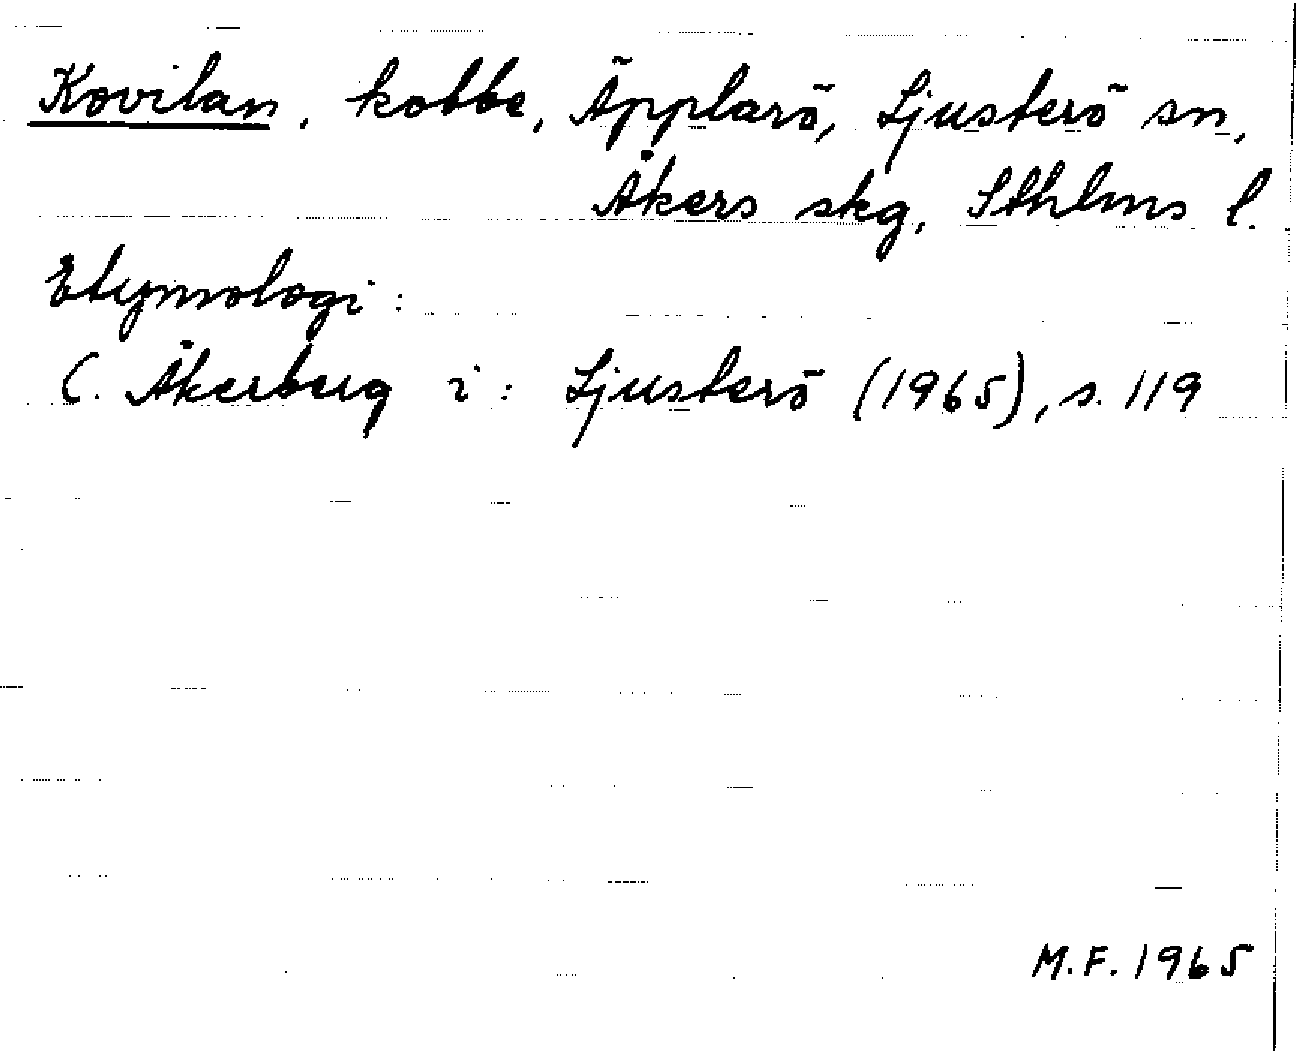 Kovilan, kobbe, Äpplarö, Ljusterö sn,
Åkers skg, Sthlms l.
Etymologi:
C. Åkerberg i: Ljusterö (1965), s. 119
M.F. 1965